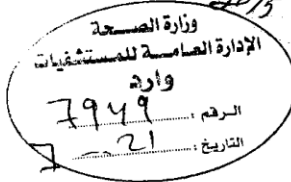 وزارة الصحة
الإدارة العامة للمستشفيات
وارد
الرقم : 7949
التاريخ : 21